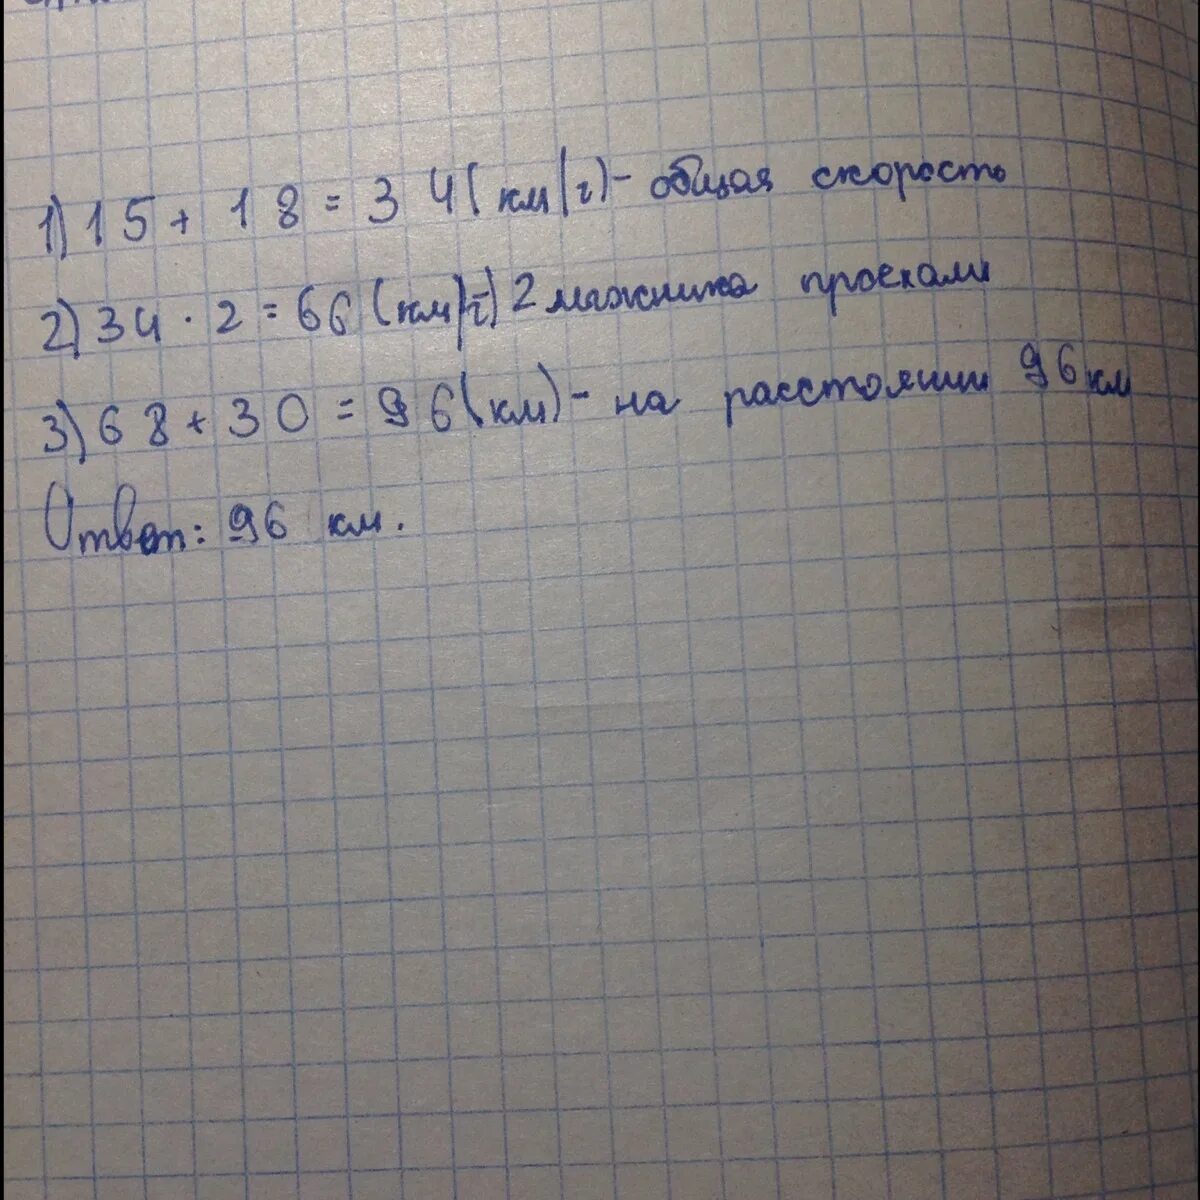 1) 15 + 18 = 34 (км/ч) - общая скорость
2) 34 · 2 = 66 (км/ч) 2 проехали
3) 68 + 30 = 96 (км) - на расстоянии 96 км
Ответ: 96 км.